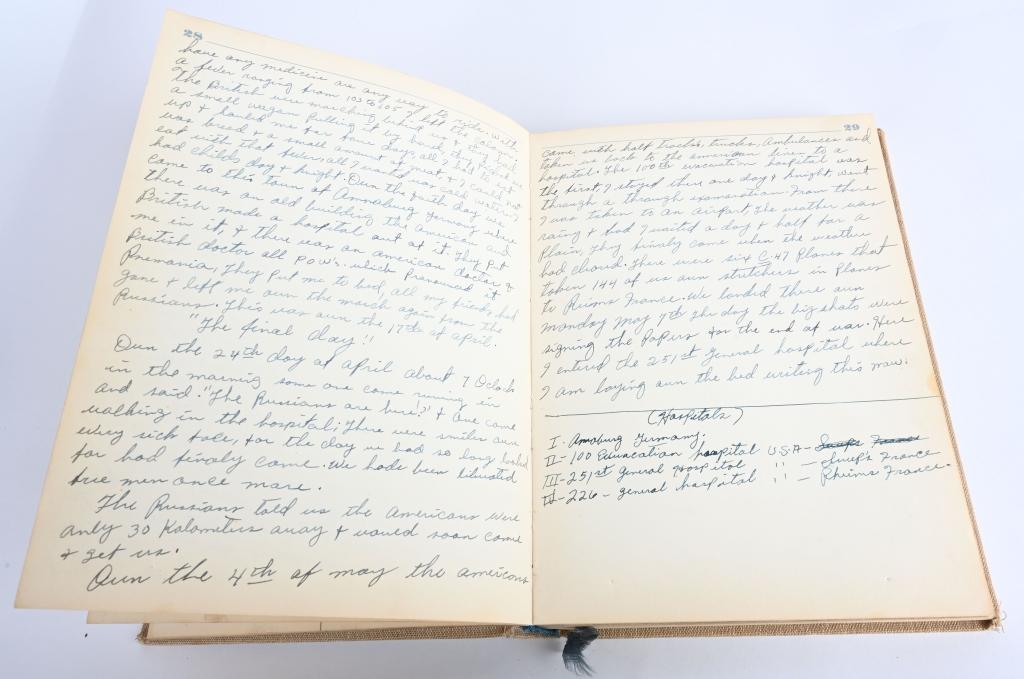 28
have any medicine are any way to ride. With
a fever ranging from 103 to 105 I left the Colomn
the British were marching behind us & the two
a small wagon pulling it by hand, they picked me
up & hauled me for some days, all I had to eat
was bread & a small amount of meat & I could not
eat with that fever, all I wanted was cold water. I
had chills day & knight. Oun the fifth day we
came to this town of Annaburg Germany where
there was an old building the American and
British made a hospital out of it. They put
me in it, & there was an american doctor &
British doctor all POW's. which pranounced it
Pnemania, They put me to bed, all my friends had
gone & left me oun the march again from the
Russians. This was oun the 17th of april.
"The final day"!
Oun the 24th day of April about 7 Oclock
in the marning some one come running in
and said. "The Russians are here." & one came
walking in the hospital. There were smiles oun
every sick face, for the day we had so long looked
for had finaly come. We hade been liberated
free men once mare.
The Russians told us the Americans were
anly 30 Kalometers away & would soon come
& get us.
Oun the 4th of may the americans
29
came, with half tracks, trucks, Ambulances and
taken us back to the american lines to a
hospital. The 100th evacuation hospital was
the first, I stayed there one day & knight, went
through a through examenation. From there
I was taken to an airport, The weather was
raing & bad I waited a day & half for a
plain, They finaly come when the weather
had cleard. There were six C-47 Planes that
taken 144 of us oun stretchers in Planes
to Reims France. We landed there oun
monday May 7th the day the big shats were
signing the Papers for the end of war. Here
I entered the 251st General hospital where
I am laying oun the bed writing this now.
(Hospitals)
I- Annaburg Germany.
II- 100 Evacuation hospital U.S.A -
III- 251st General Hospital " - France
IV- 226 - general hospital " - Rheims France.